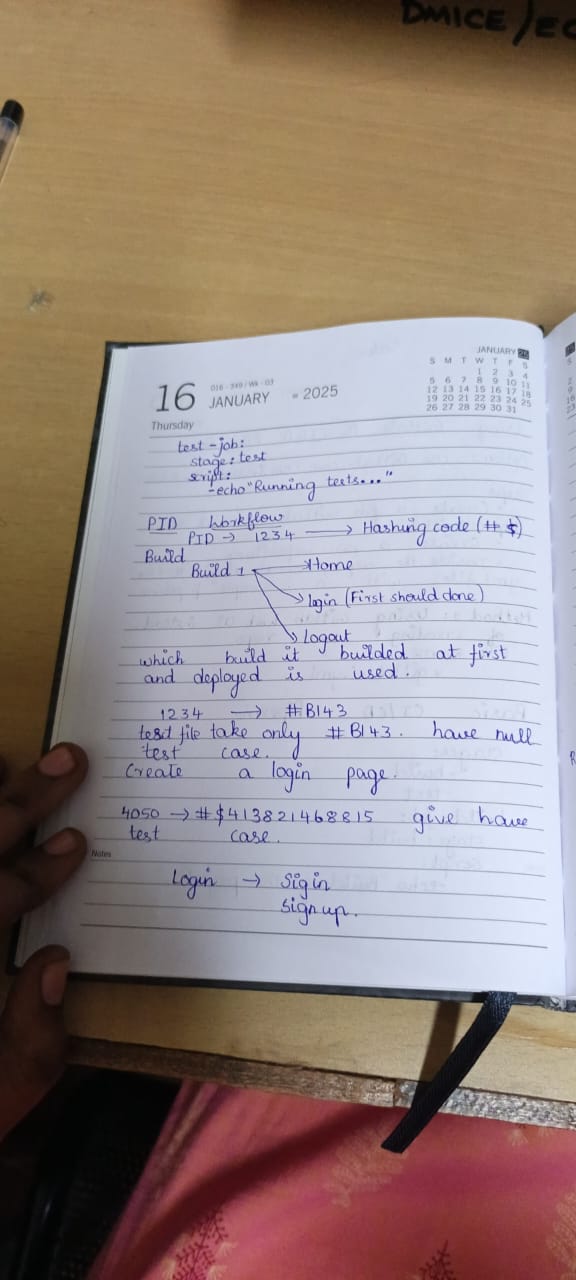 DMICE/EC
JANUARY 25
S M T W T F S
1 2 3 4
5 6 7 8 9 10 11
12 13 14 15 16 17 18
19 20 21 22 23 24 25
26 27 28 29 30 31
16
016 - 349 / Wk - 03
JANUARY 2025
Thursday
test-job:
stage: test
script:
-echo "Running tests..."
PID Workflow
PID → 1234 → Hashing code (# $)
Build
Build 1 → Home
→ login (First should done)
→ Logout
which build it builded at first
and deployed is used.
1234 → #B143
test file take only #B143. have null
test case.
Create a login page.
4050 → #$413821468815 give have
test case.
Notes
Login → Sigin
Signup.